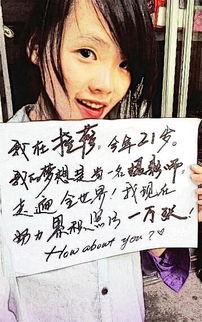 我在搖籃，今年21岁。
我的梦想是当一名摄影师，
走遍全世界！我现在
努力累积照片一万张！
How about you?♡